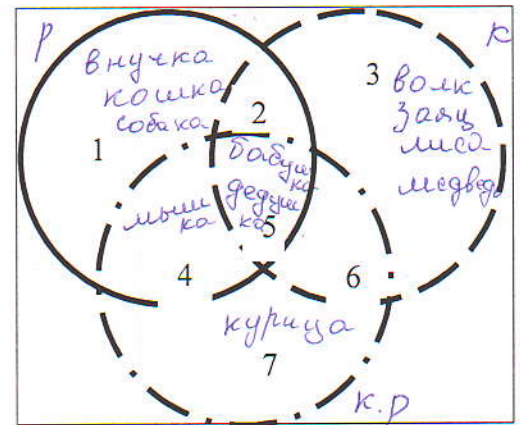 р
к
внучка
кошка
собака
1
2
3
волк
заяц
лиса
медведь
бабуш-
ка
дедуш
ка
5
мыш
ка
4
6
курица
7
к.р